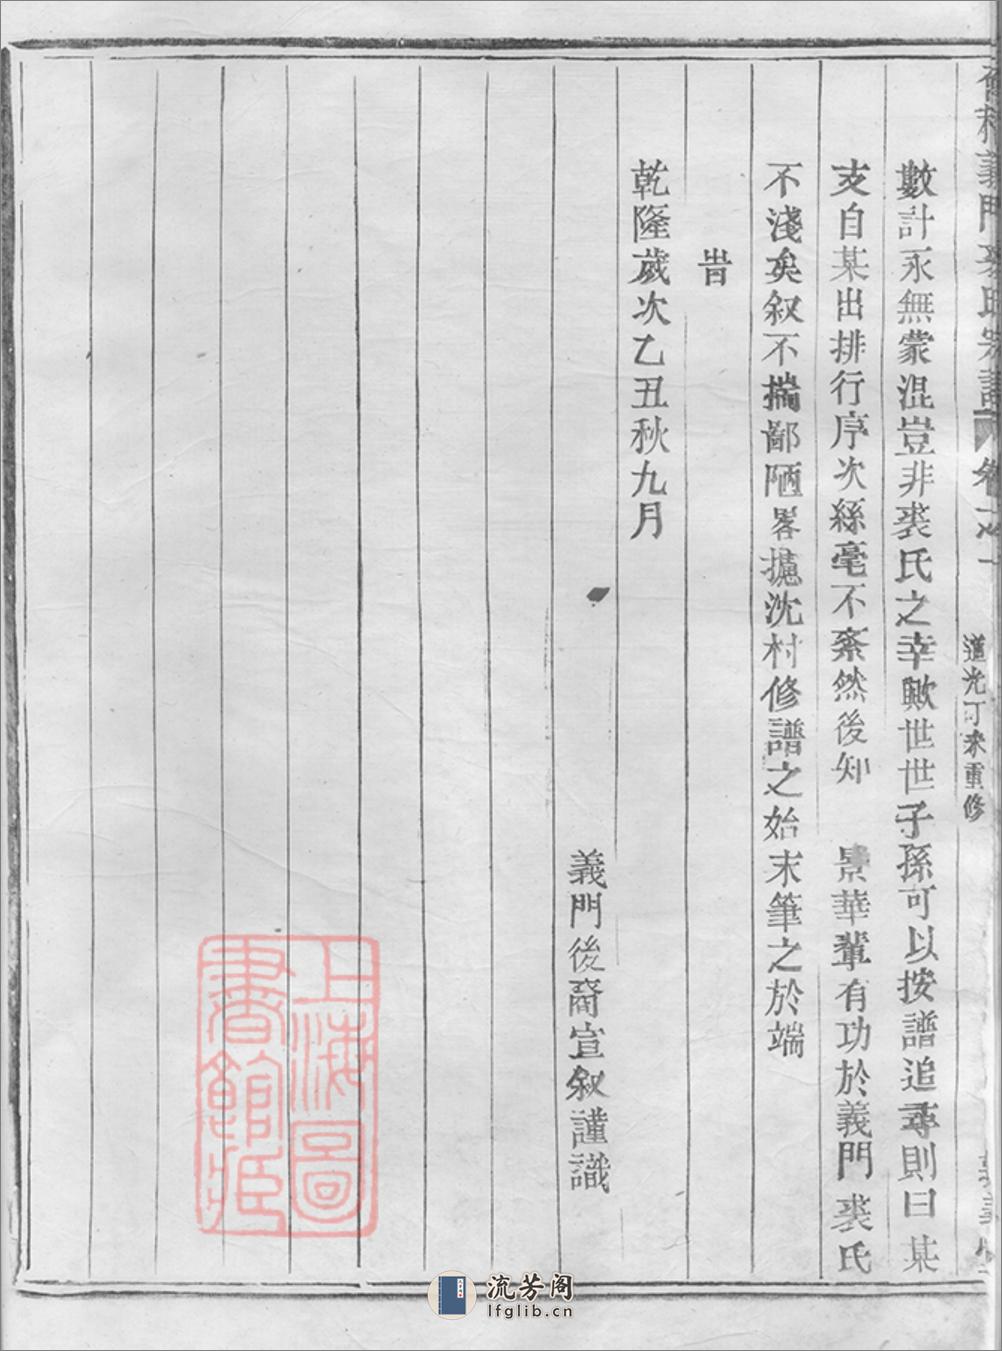 義門裘氏宗譜 卷之一 道光丁未重修
數計永無蒙混豈非裘氏之幸歟世世子孫可以按譜追尋則曰某
支自某出排行序次絲毫不紊然後知 景華輩有功於義門裘氏
不淺矣叙不揣鄙陋畧摅沈村修譜之始末筆之於端
旹
乾隆歲次乙丑秋九月
義門後裔宣叙謹識
上海圖書館藏
流芳阁
lfglib.cn